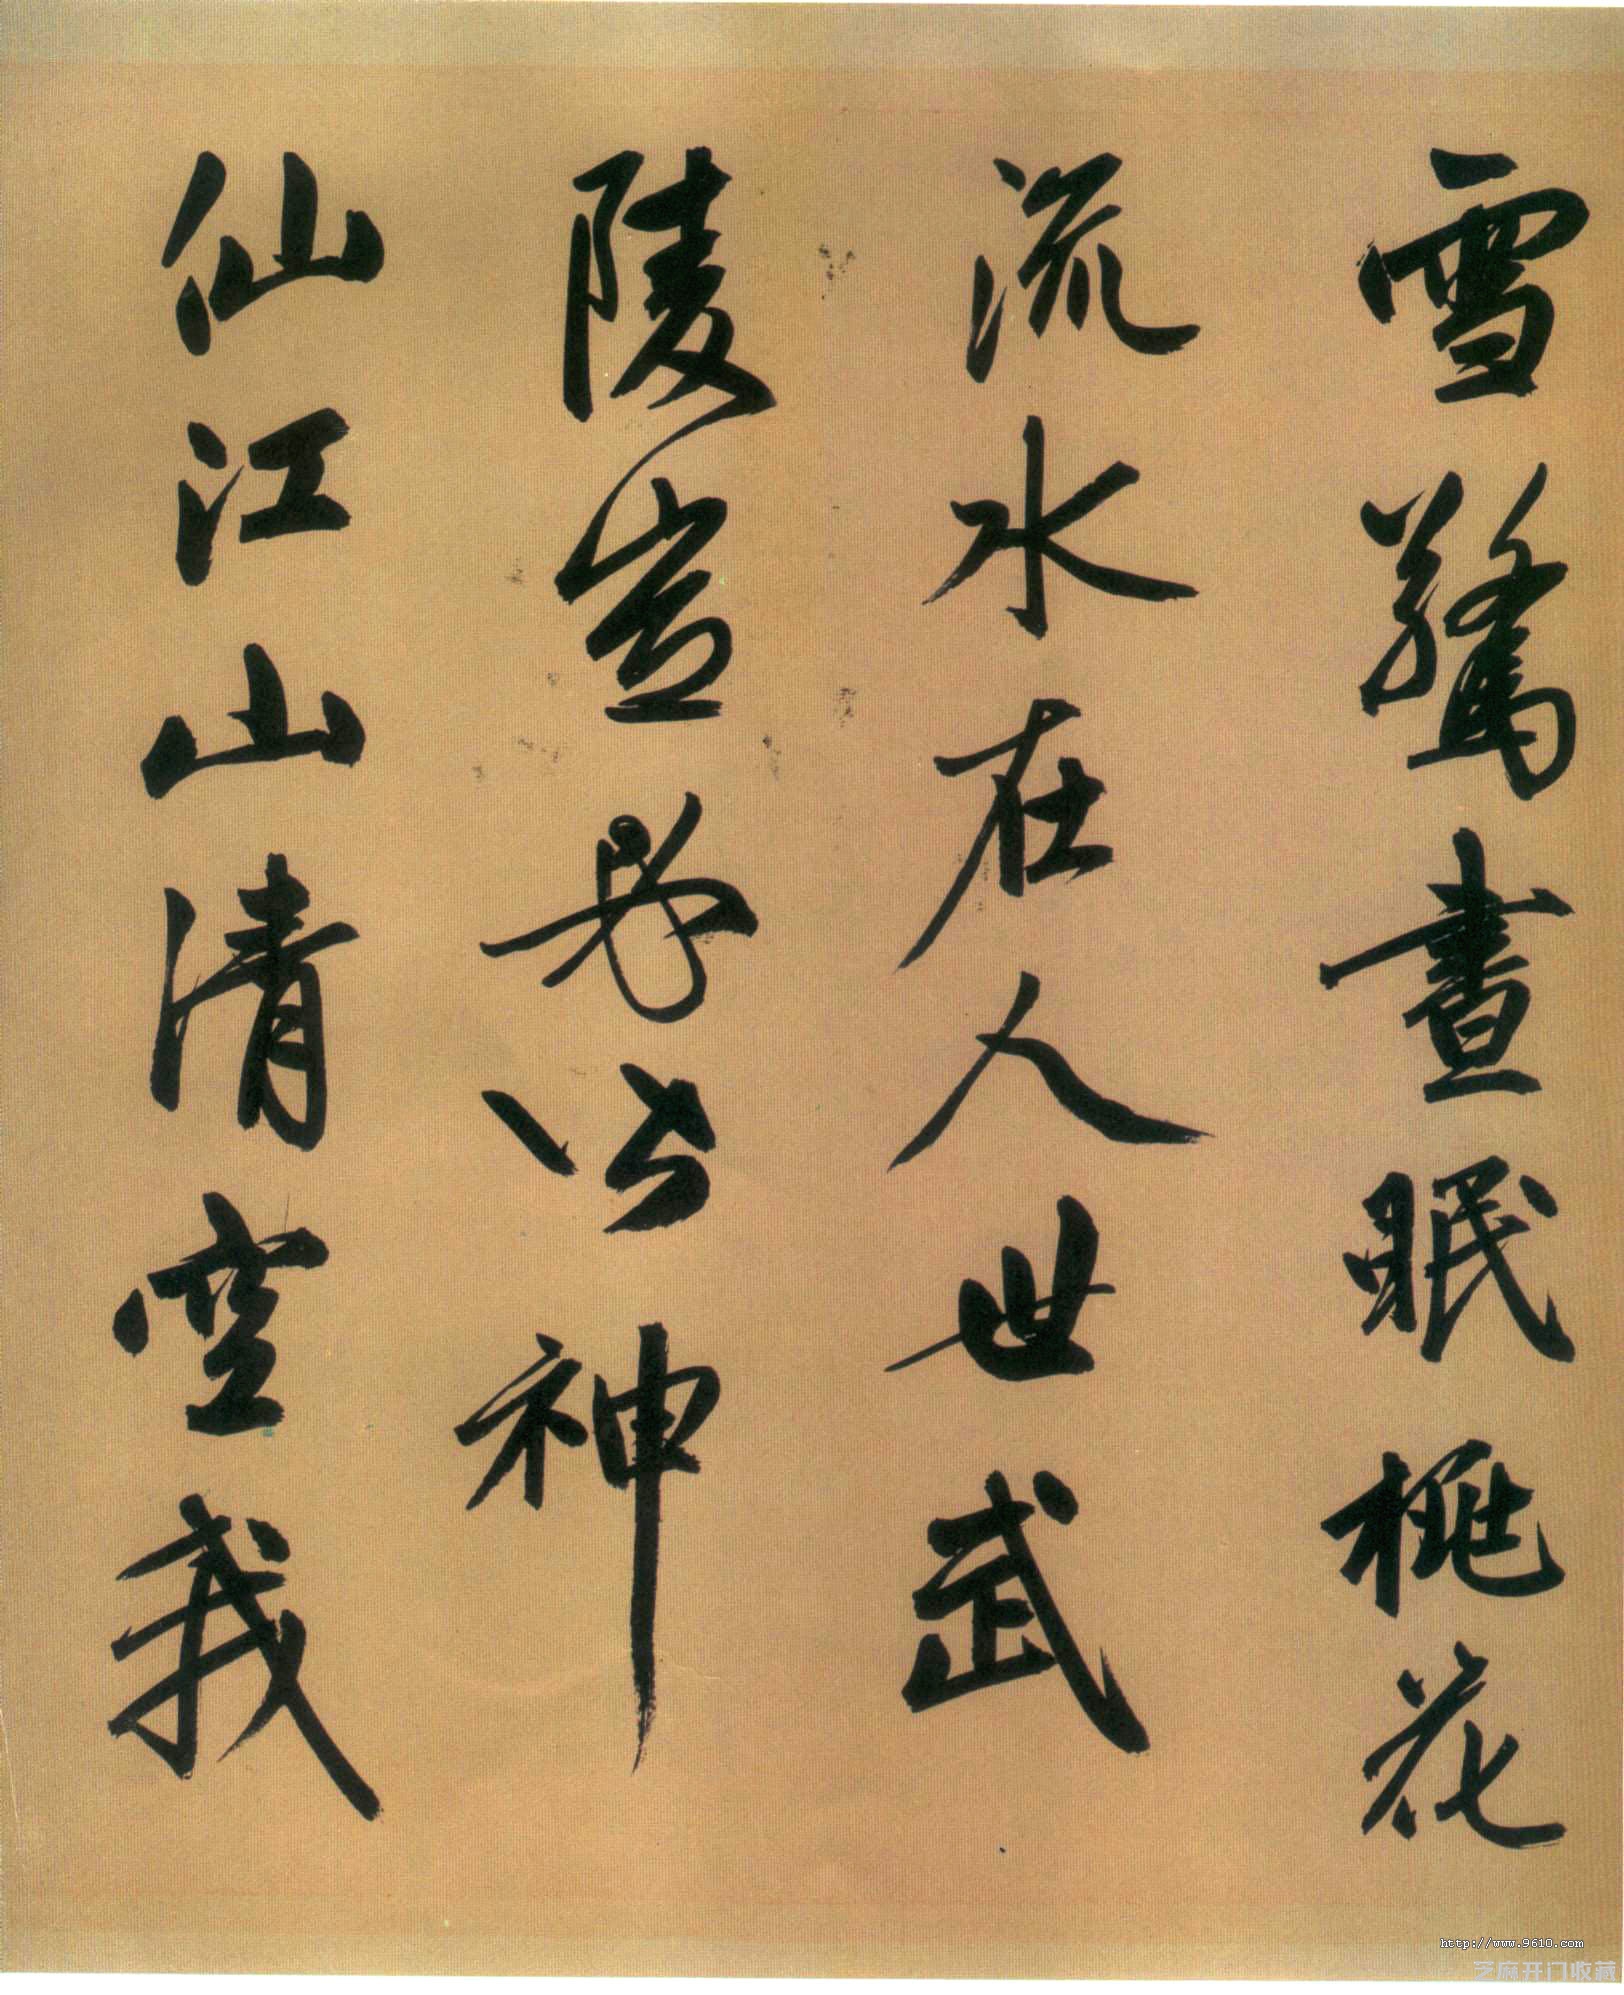 雪驚晝眠桃花
流水在人世武
陵豈必皆神
仙江山清空我
http://www.9610.com
芝麻开门收藏